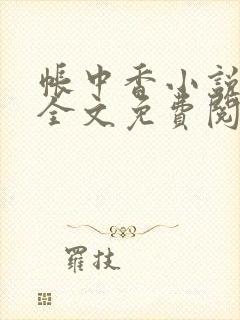 帳中香小說
全文免費閱
羅技